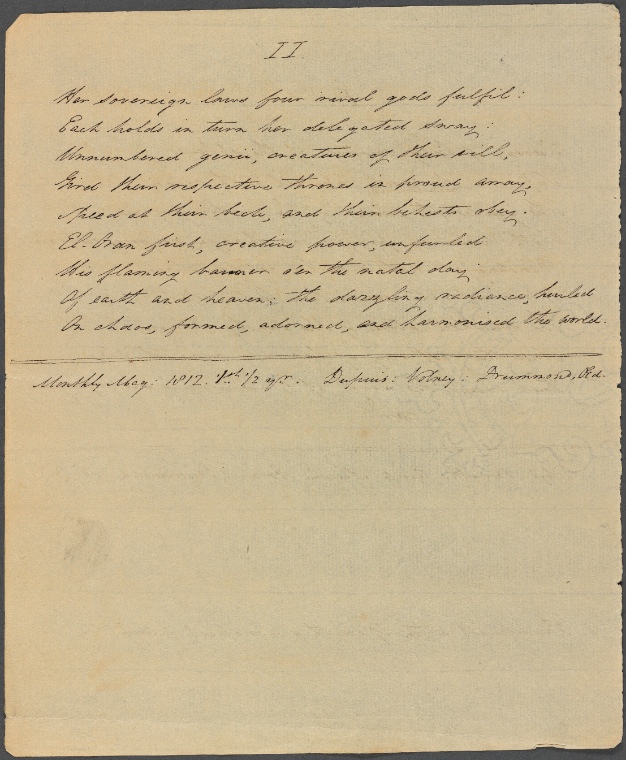 II.
Her sovereign laws four rival gods fulfil:
Each holds in turn her delegated sway:
Unnumbered genii, creatures of their will,
Gird their respective thrones in proud array,
Speed at their beck, and their behests obey.
El. Oran first, creative power, unfurled
His flaming banner o'er the natal day
Of earth and heaven: the dazzling radiance, hurled
On chaos, formed, adorned, and harmonised the world.
Monthly Mag: 1812. 1/2 yr. Dupuis: Volney: Drummond,